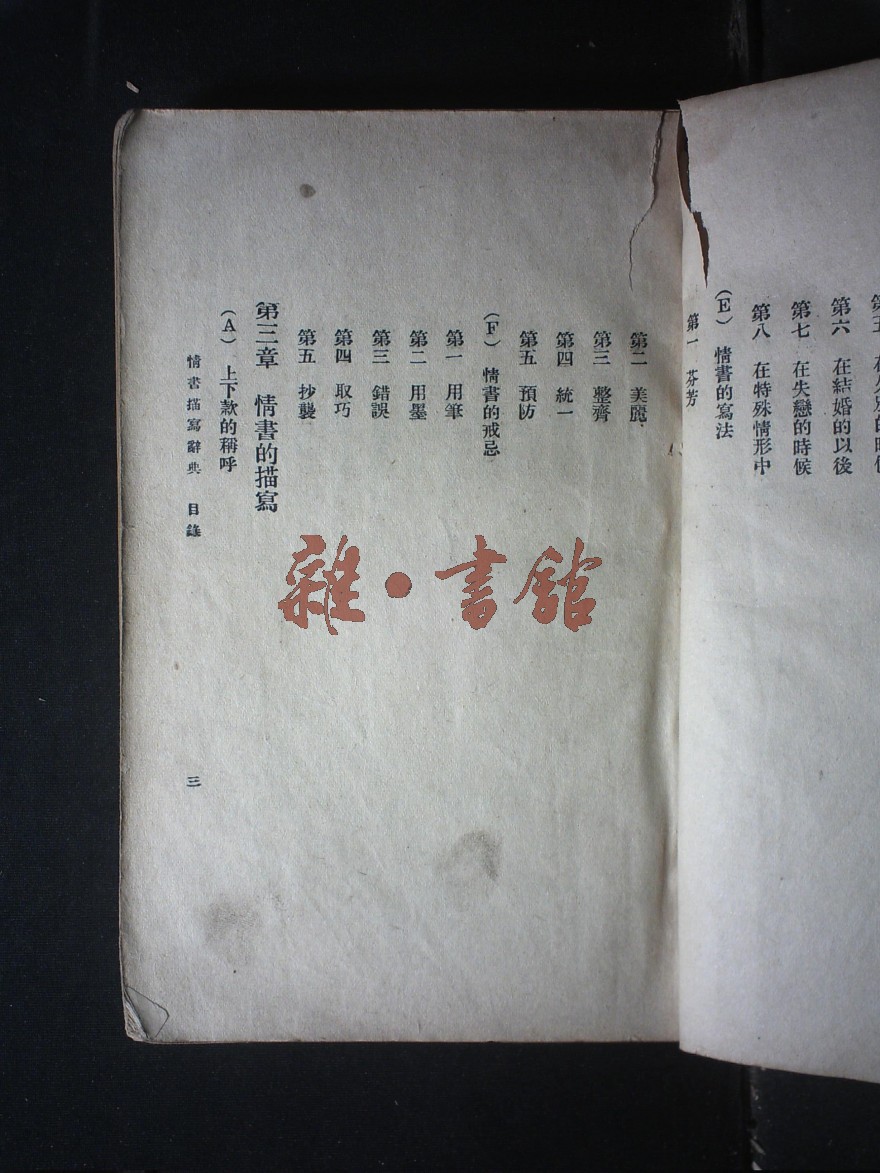 第六　在結婚的以後
第七　在失戀的時候
第八　在特殊情形中
（E）　情書的寫法
第一　芬芳
第二　美麗
第三　整齊
第四　統一
第五　預防
（F）　情書的戒忌
第一　用筆
第二　用墨
第三　錯誤
第四　取巧
第五　抄襲
第三章　情書的描寫
（A）　上下款的稱呼
情書描寫辭典　目錄
三
雜·書館